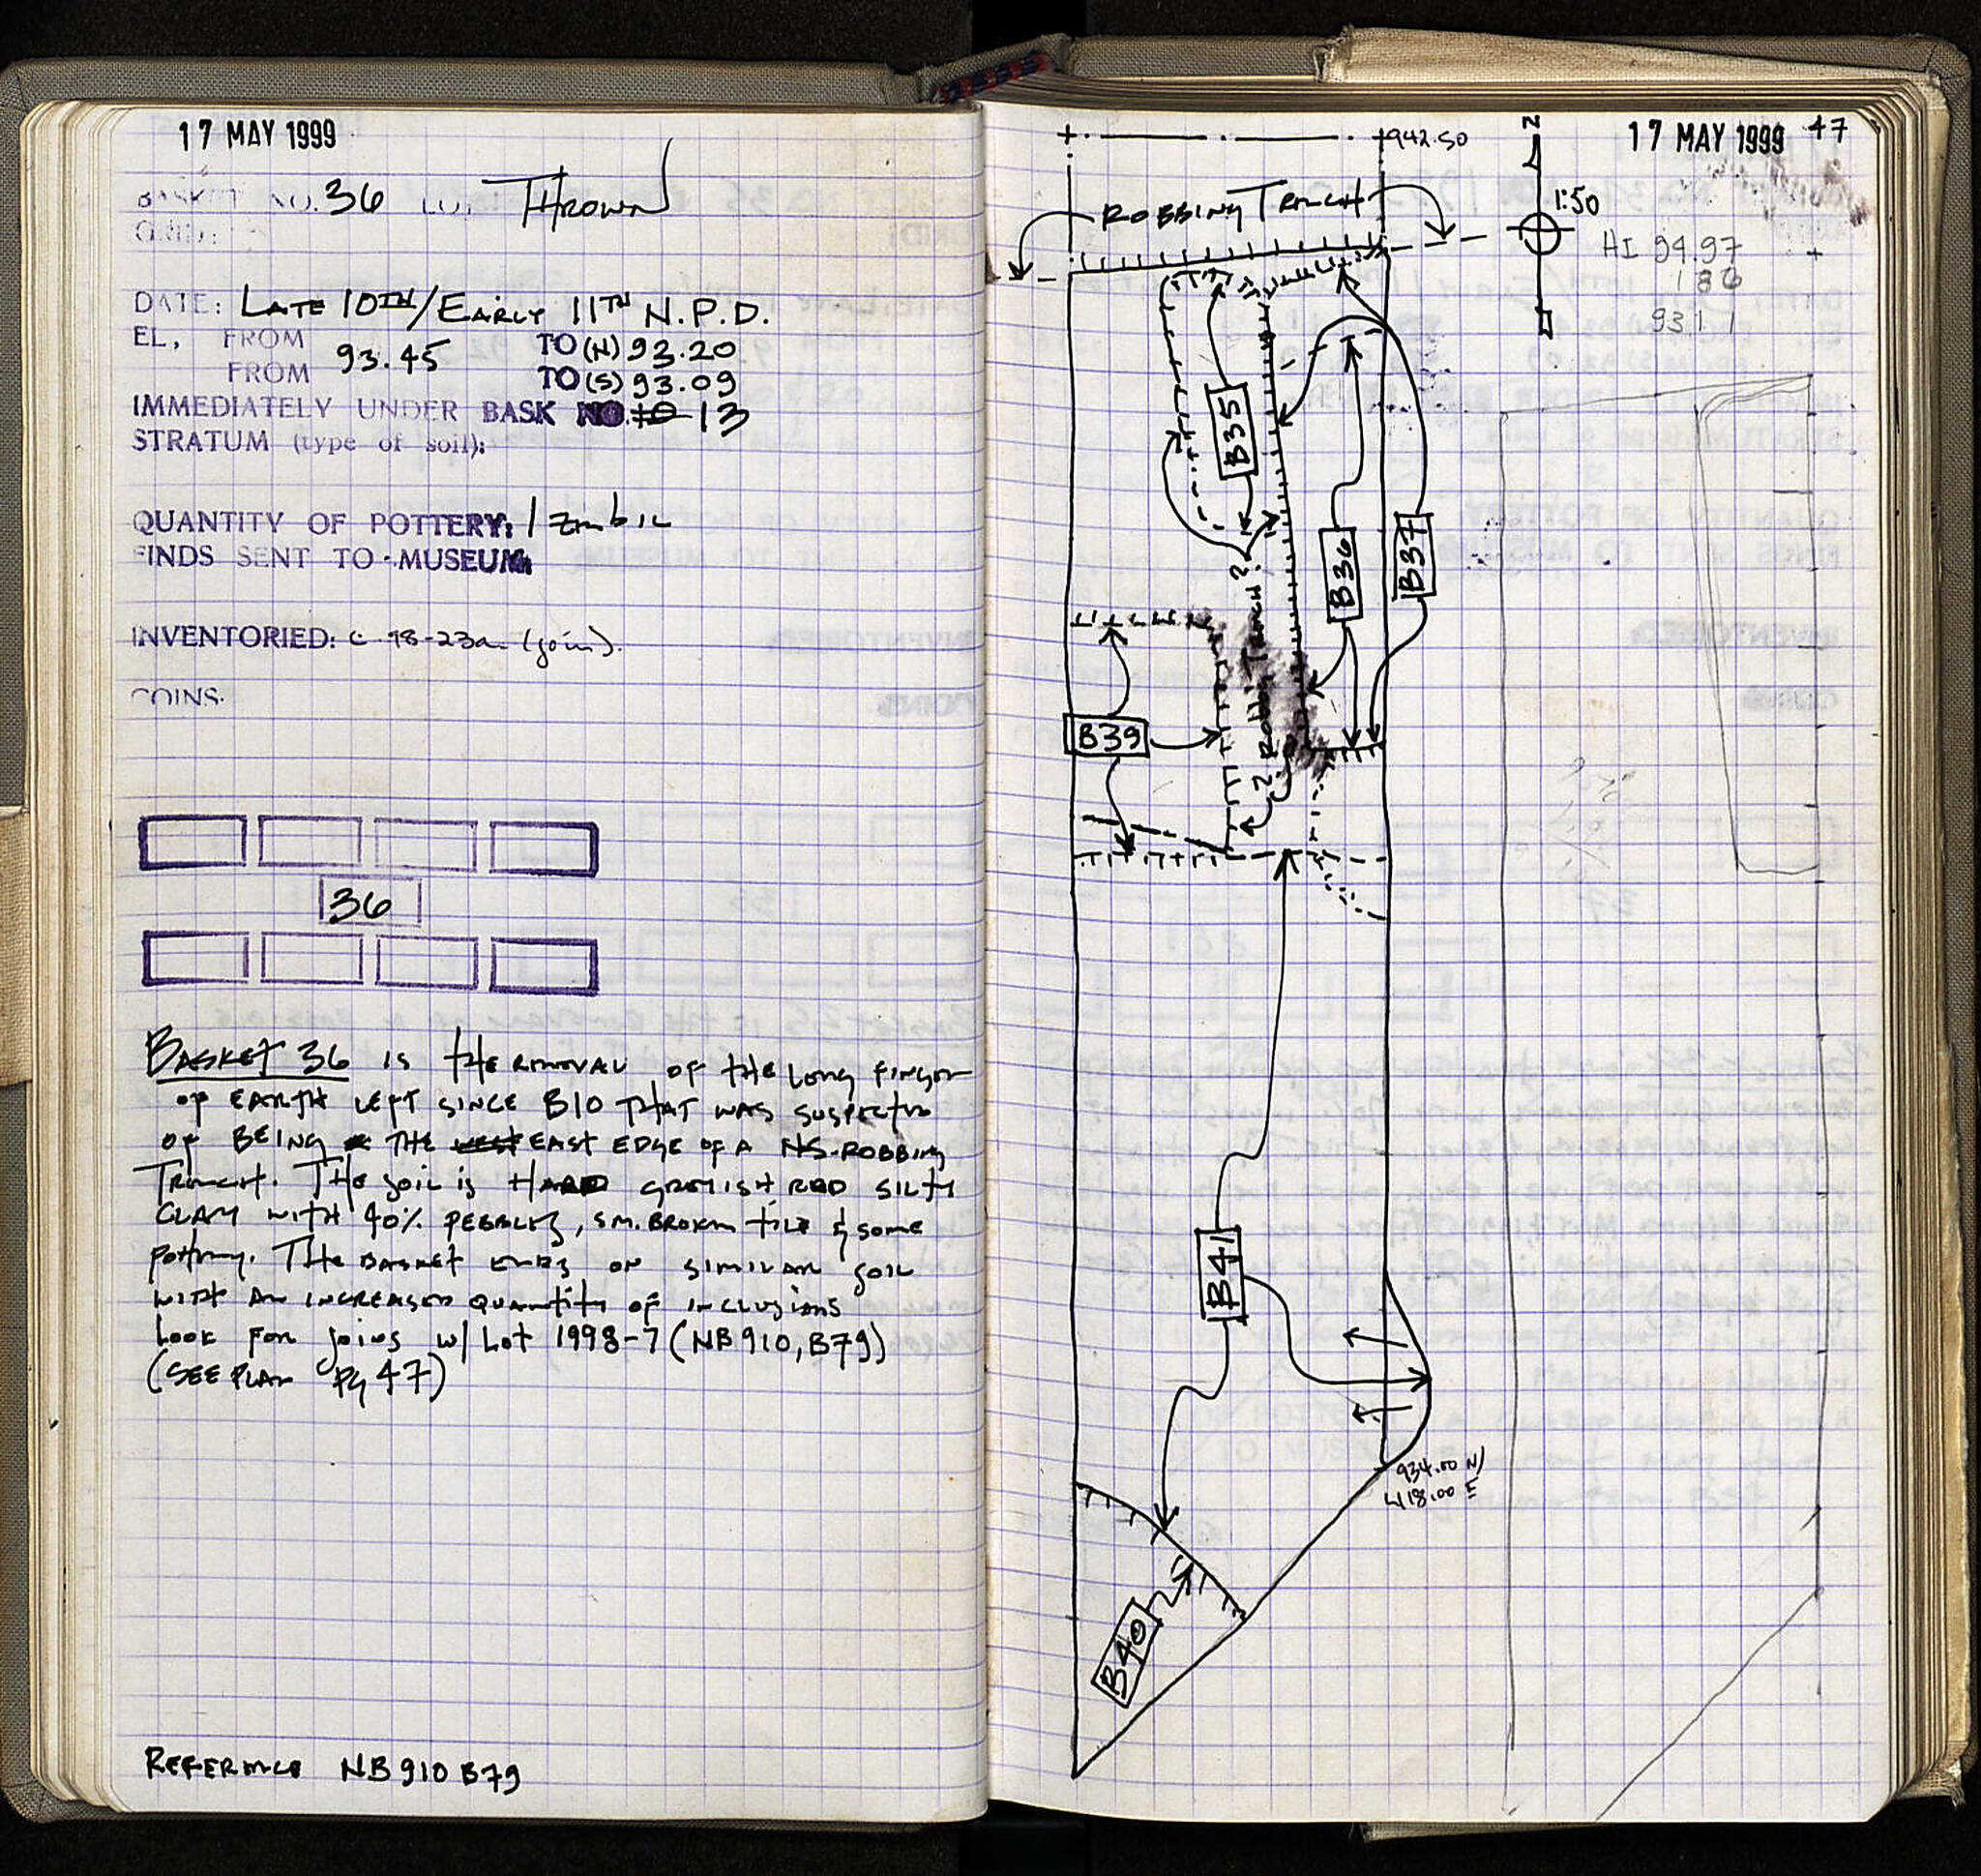 17 MAY 1999
BASKET NO. 36 LOT Thrown
GRID:
DATE: LATE 10TH/EARLY 11TH N.P.D.
EL, FROM 93.45 TO (N) 93.20
FROM TO (S) 93.09
IMMEDIATELY UNDER BASK NO. 10 13
STRATUM (type of soil):
QUANTITY OF POTTERY: 1 Zmbil
FINDS SENT TO MUSEUM
INVENTORIED: C-98-23a (join).
COINS.
36
BASKET 36 IS THE REMOVAL OF THE LONG FINGER
OF EARTH LEFT SINCE B10 THAT WAS SUSPECTED
OF BEING THE WEST EAST EDGE OF A NS-ROBBING
TRENCH. THE SOIL IS HARD GREYISH RED SILTY
CLAY WITH 40% PEBBLES, SM. BROKEN TILE & SOME
POTTERY. THE BASKET ENDS ON SIMILAR SOIL
WITH AN INCREASED QUANTITY OF INCLUSIONS
LOOK FOR JOINS W/ LOT 1998-7 (NB 910, B79)
(SEE PLAN Pg 47)
REFERENCE NB 910 B79
17 MAY 1999 47
942.50
N
1:50
ROBBING TRENCH
HI 94.97
186
93 1 1
B35
B36
B37
? Robbing Trench?
B39
B41
934.00 N/
418.00 E
B40